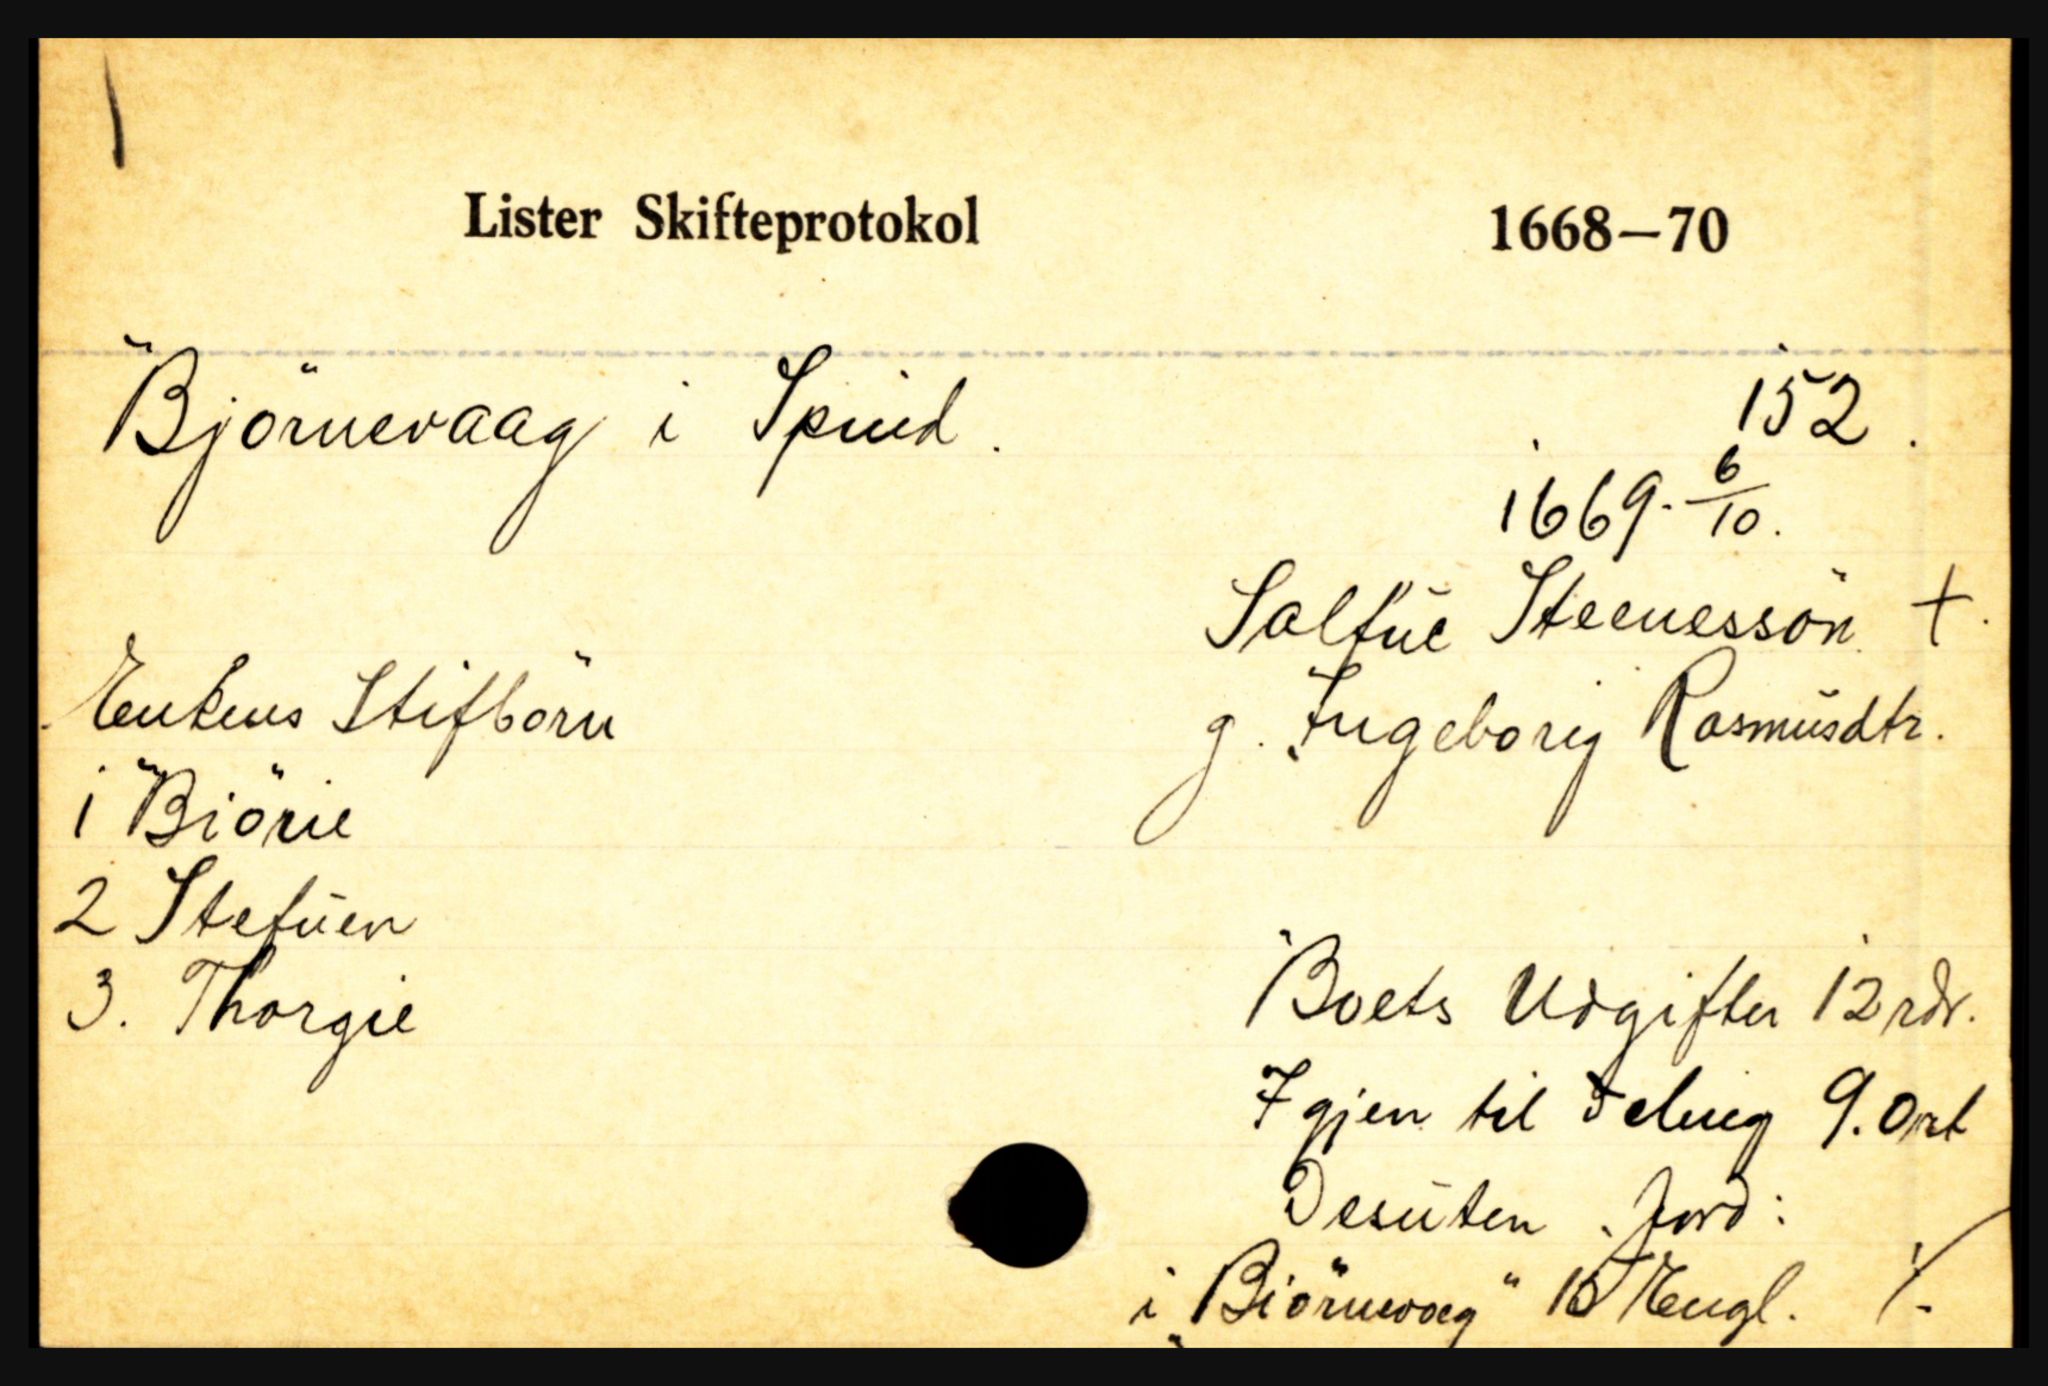 Lister Skifteprotokol 1668—70
Björnevaag i Spind. 152.
1669. 6/10.
Salfüe Steenessön +.
g. Ingeborig Rasmüsdtr.
Enkens Stifbörn
1 Biörie
2 Stefüen
3. Thorgie
Boets Udgifter 12 rdr.
Igjen til Deling 9. Ort
Desüten Jord:
i Biörnevaag" Engl. ./.